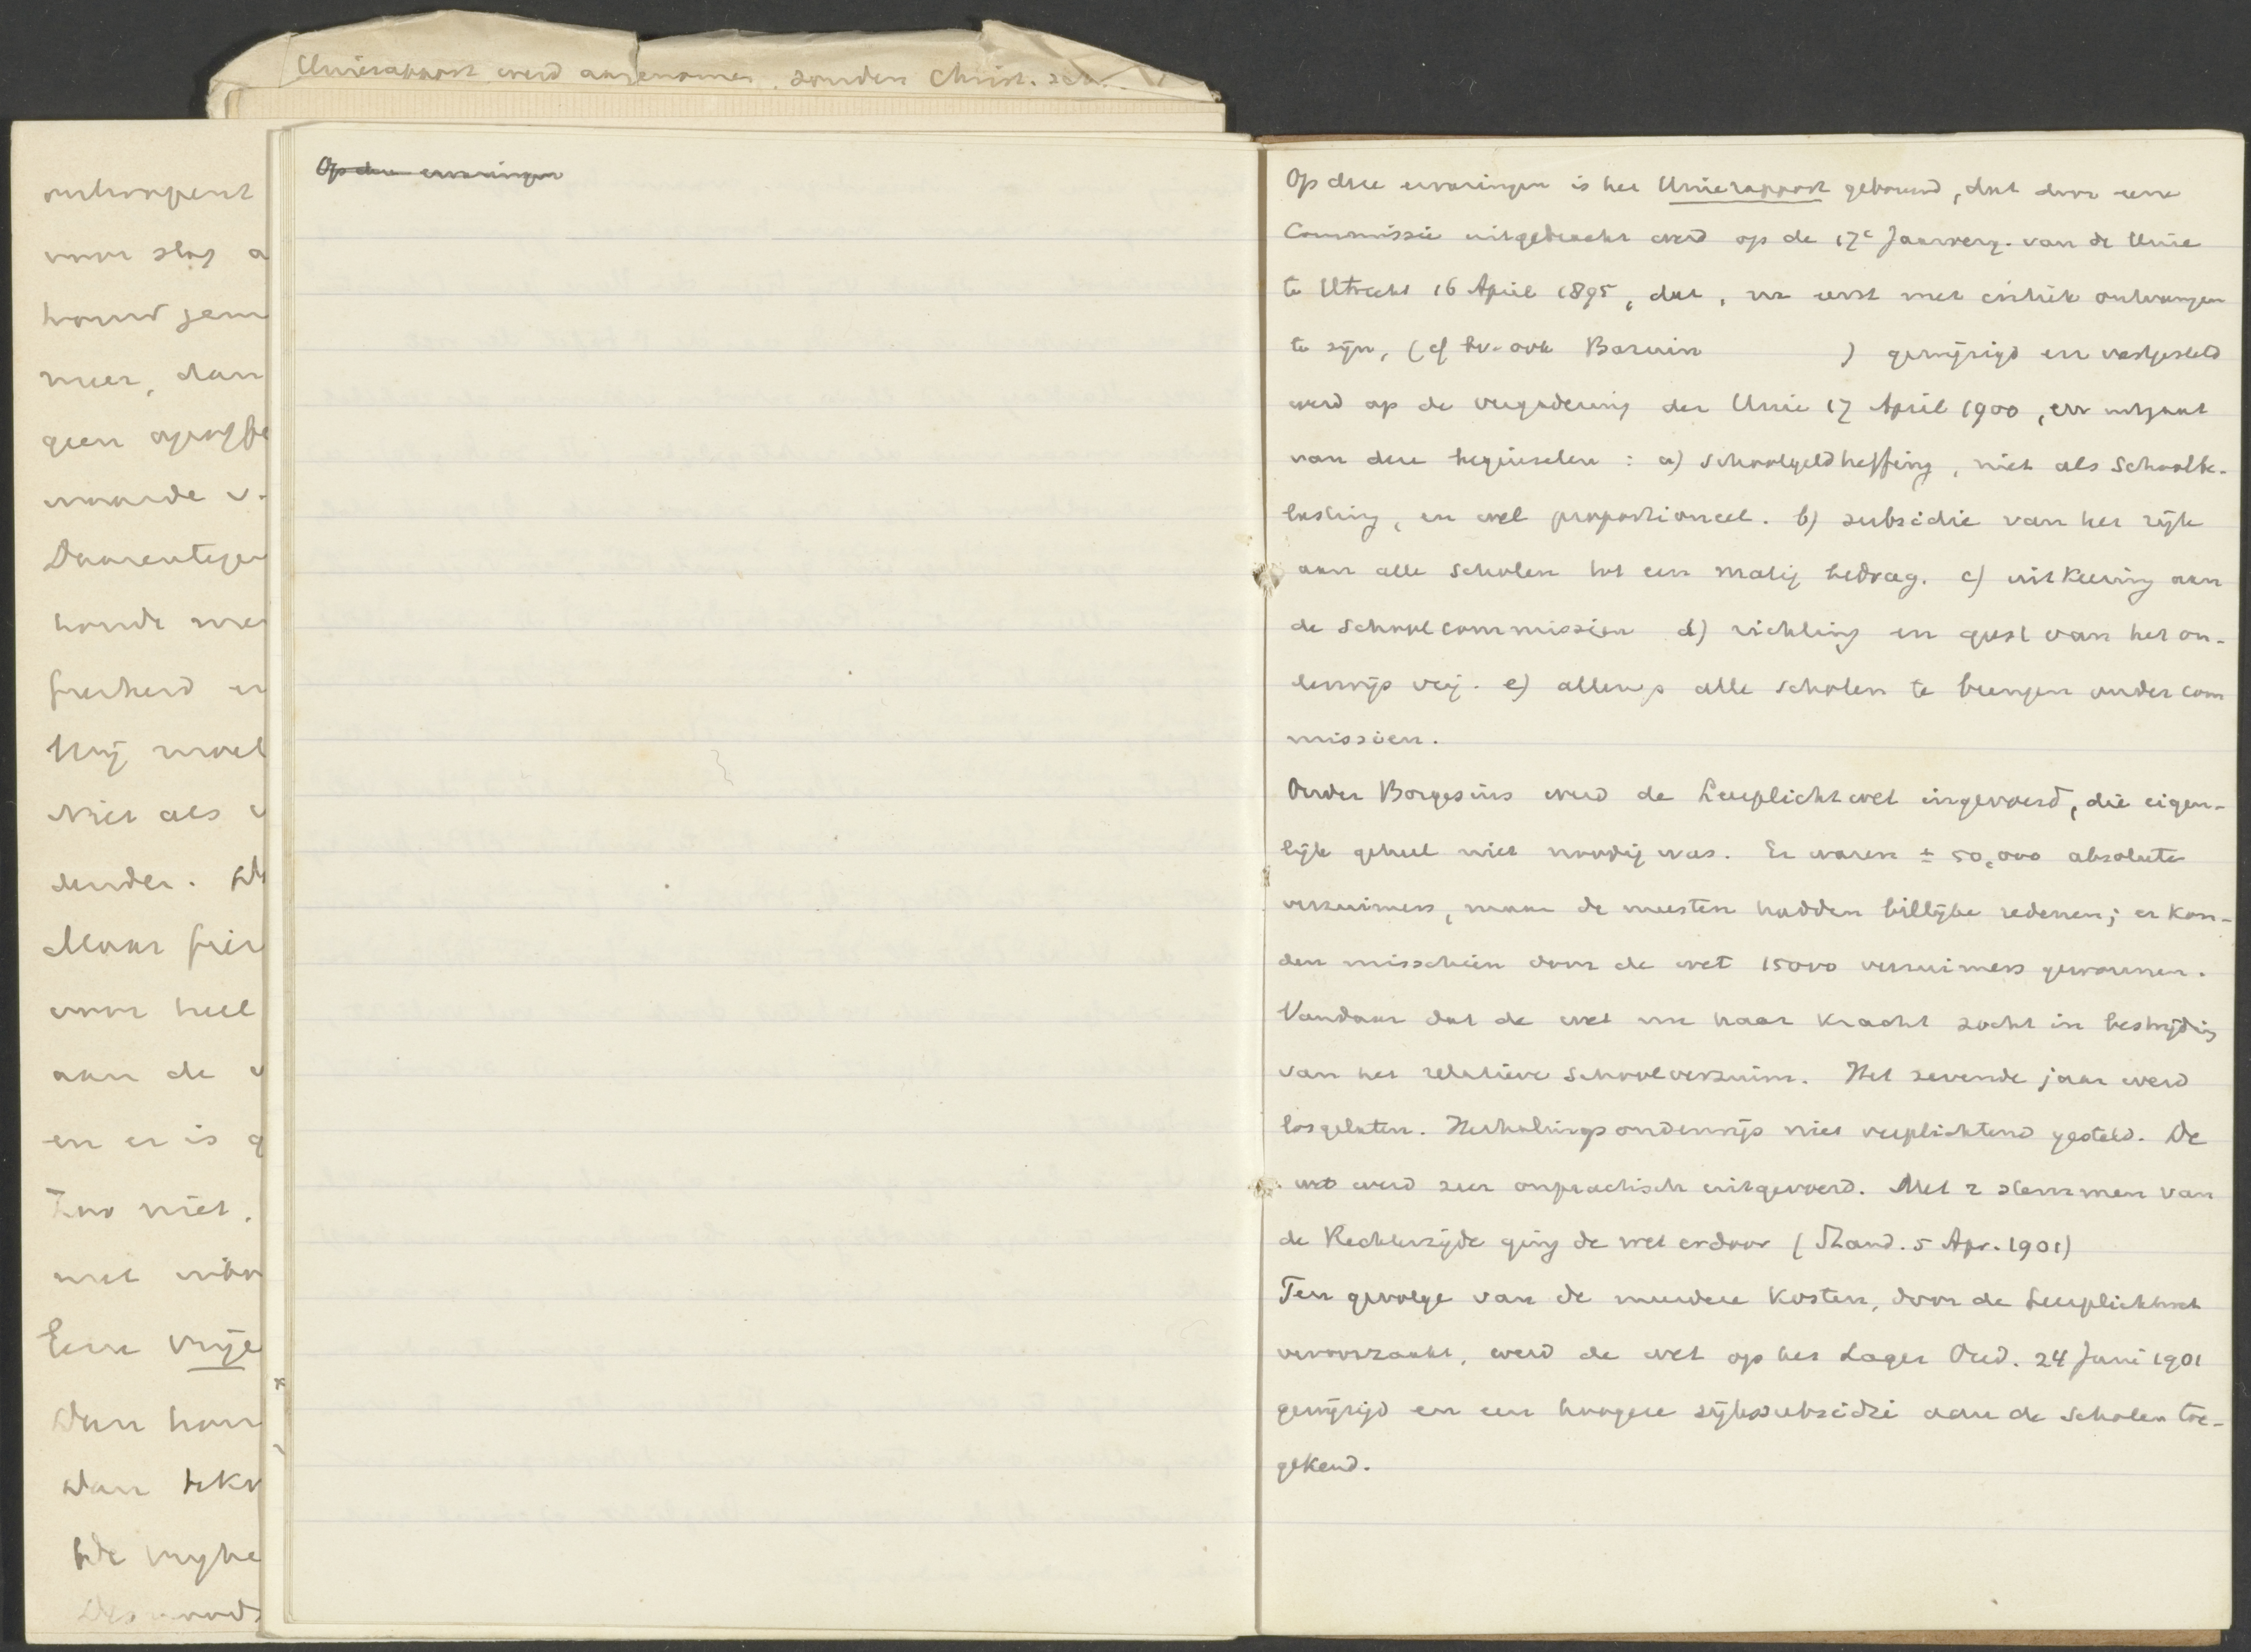 Unierapport werd aangenomen, zonder Christ. sch.
onhoopent
voor slag a
houdt jem
meer, dan
geen
waarde v.
Daarentegen
honde me
frischeid en
Hij moet
Niet als
dender.
Maar frie
voor heel
aan de v
en er is g
Zoo niet,
met
Eene vrije
Dan hou
Dan
De vryhe
Des noods
Op deze ervaringen
Op deze ervaringen is het Unierapport gebouwd, dat door eene
Commissie uitgebracht werd op de 17e Jaarverg. van de Unie
te Utrecht 16 April 1895, dat, na eerst met critiek ontvangen
te zijn, (cf bv. ook Bavin ) gewijzigd en vastgesteld
werd op de vergadering der Unie 17 April 1900, en uitgaat
van deze beginselen : a) schoolgeldheffing, niet als schoolbe-
lasting, en wel proportioneel. b) subsidie van het rijk
aan alle scholen tot een matig bedrag. c) uitkeering aan
de schoolcommissien d) richting en geest van het on-
derwijs vrij. e) allengs alle scholen te brengen onder com
missien.
Onder Borgesius werd de Leerplichtwet ingevoerd, die eigen-
lijk geheel niet noodig was. Er waren ± 50,000 absolute
verzuimers, maar de meesten hadden billijke redenen; er kon-
den misschien door de wet 15000 verzuimers gewonnen.
Vandaar dat de wet nu haar kracht zocht in bestrijding
van het relatieve schoolverzuim. Het zevende jaar werd
losgelaten. Herhalingsonderwijs niet verplichtend gesteld. De
wet werd zeer onpractisch uitgevoerd. Met 2 stemmen van
de Rechterzijde ging de wet erdoor (Stand. 5 Apr. 1901)
Ten gevolge van de meerdere kosten, door de Leerplichtwet
veroorzaakt, werd de wet op het Lager Ond. 24 Juni 1901
gewijzigd en een hoogere rijkssubsidie aan de scholen toe-
gekend.